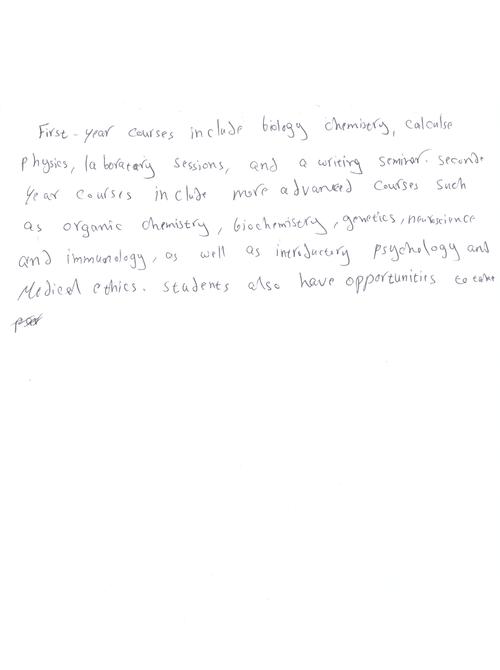 First-year courses include biology chemistry, calculse
physics, laboratary sessions, and a writing seminar. second-
year courses include more advanced courses such
as organic chemistry, biochemistry, genetics, neuroscience
and immunology, as well as introductory psychology and
Medical ethics. students also have opportunities to take